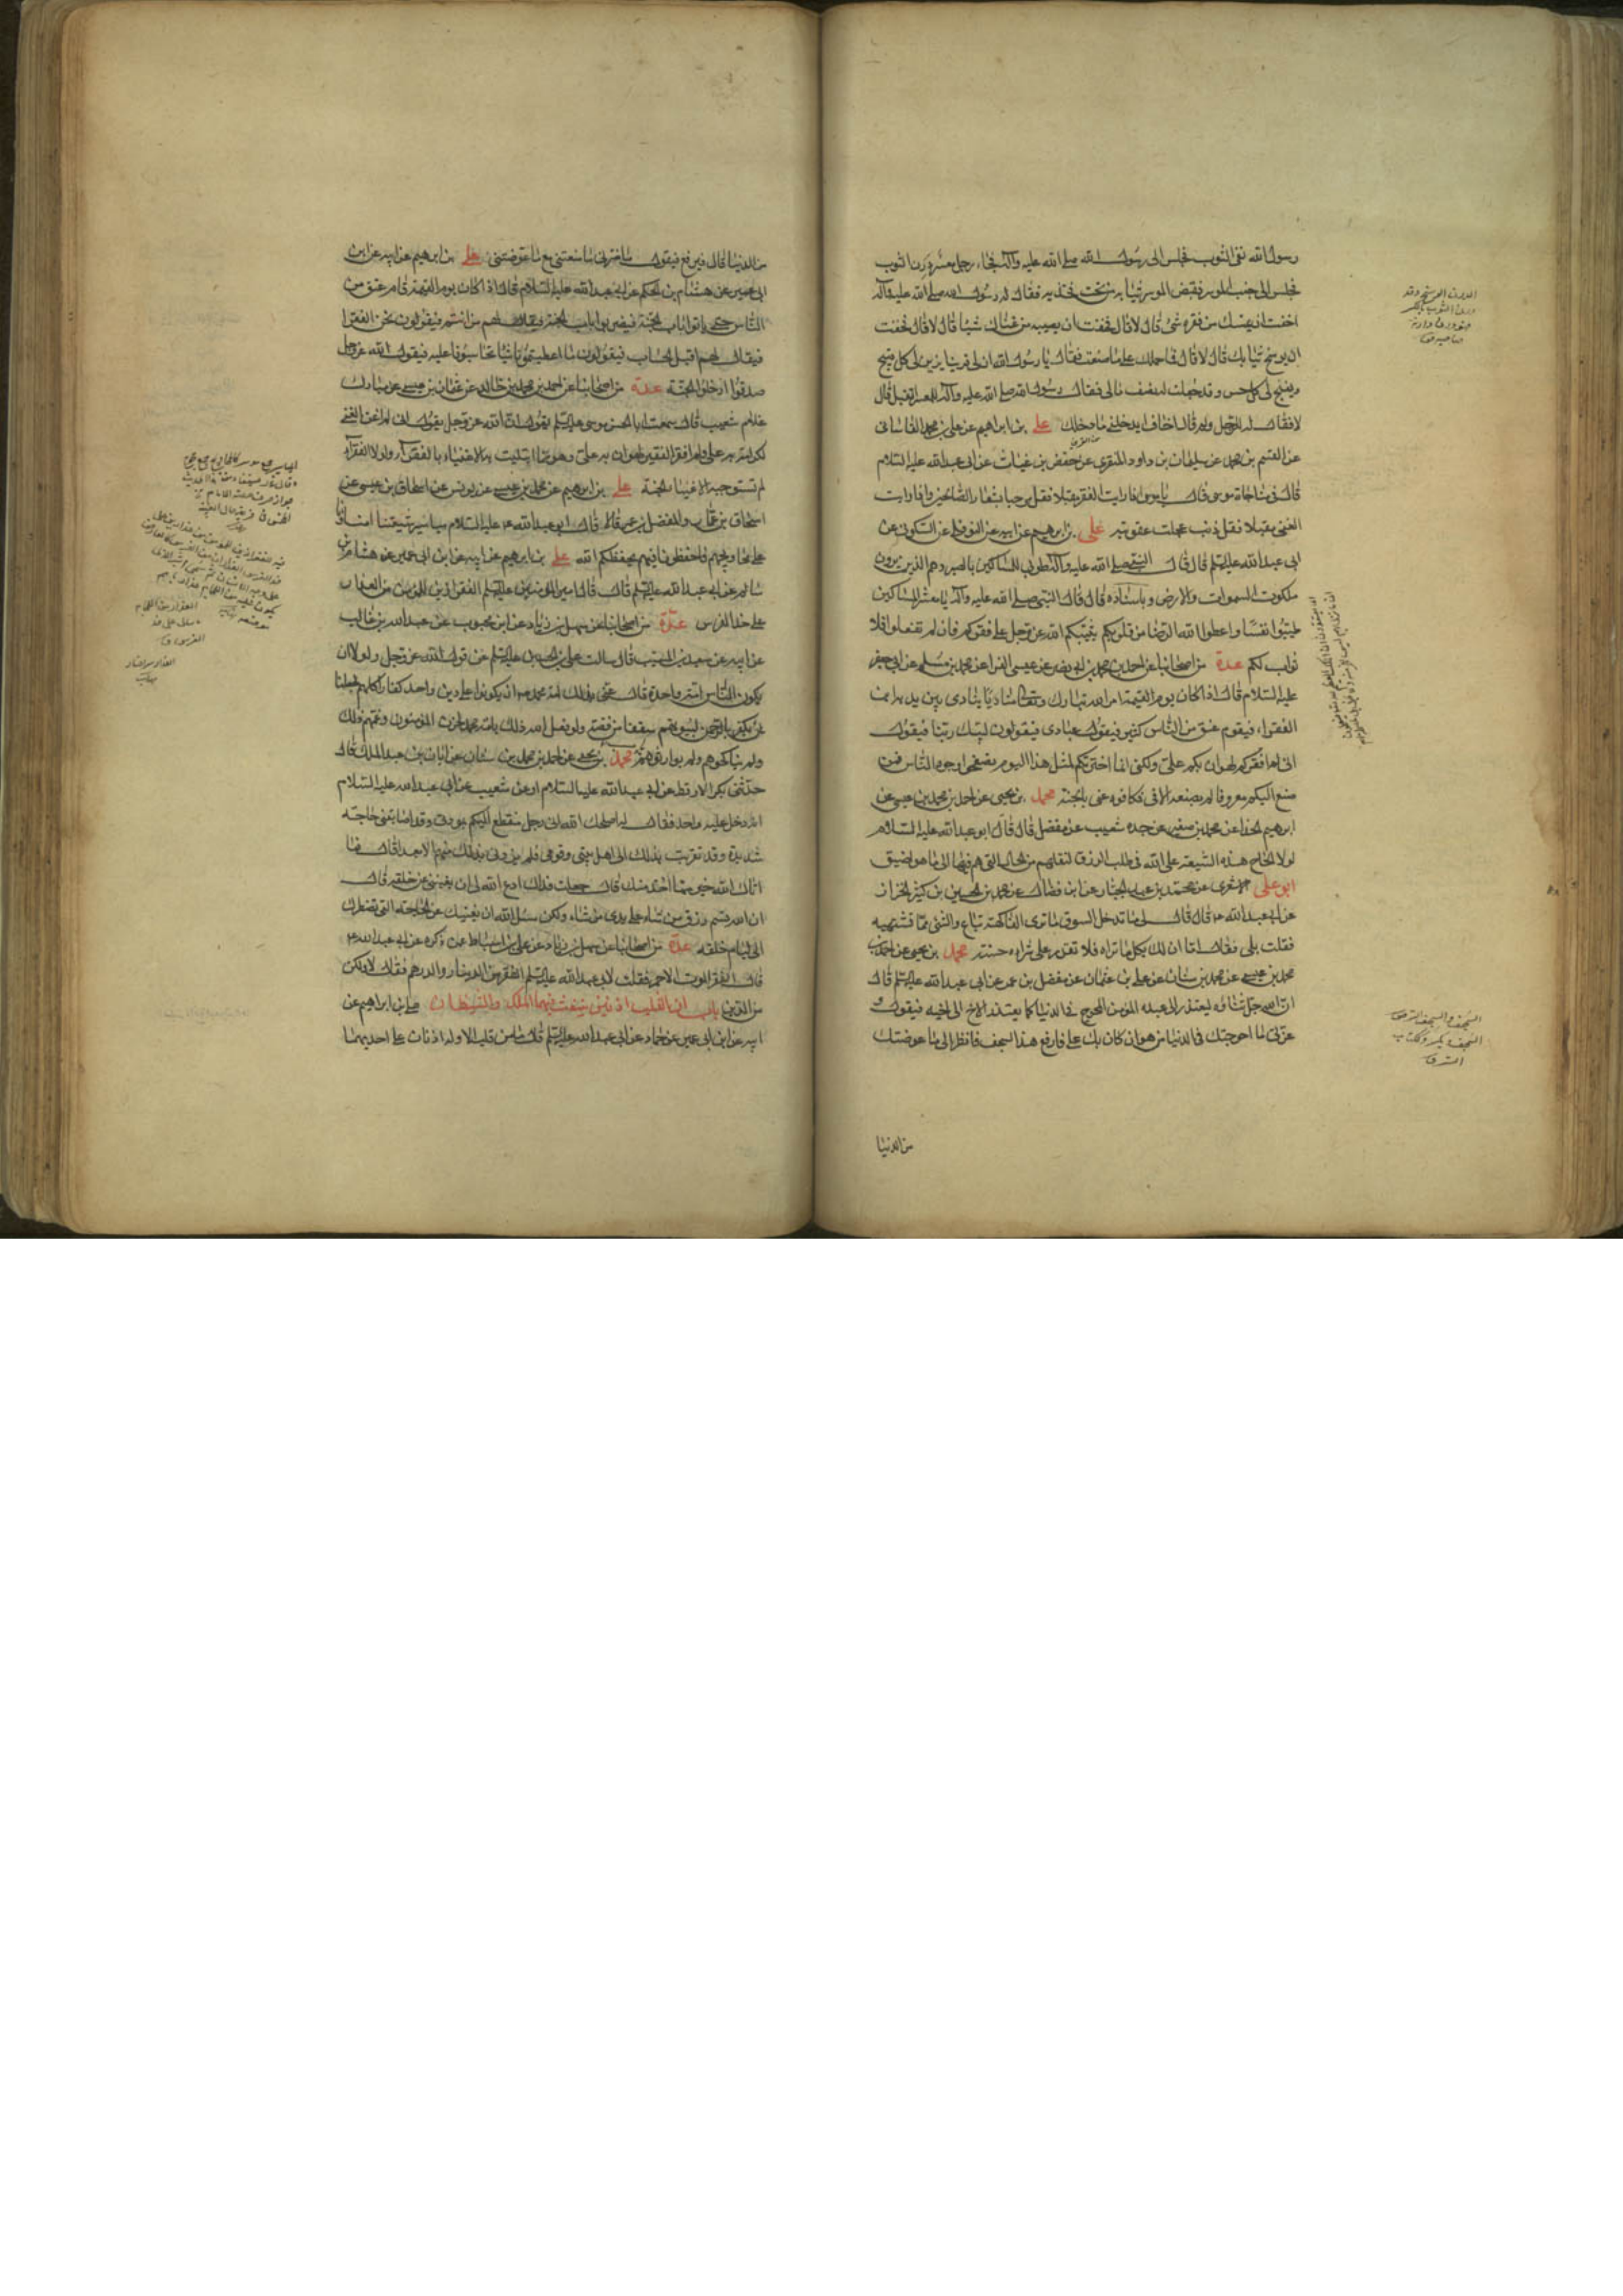 رسول الله نقى الثوب فجلس الى رسول الله صلى الله عليه وآله فجاء رجل معسر درن الثوب
فجلس الى جنب الموسر فقبض الموسر ثيابه من تحت فخذيه فقال له رسول الله صلى الله عليه وآله
اخفت ان يمسك من فقره شئ قال لا قال فخفت ان يصيبه من غناك شئ قال لا قال فخفت
ان يوسخ ثيابك قال لا قال فما حملك على ما صنعت فقال يا رسول الله ان لى قرينا يزين لى كل قبيح
ويقبح لى كل حسن وقد جعلت له نصف مالى فقال رسول الله صلى الله عليه وآله للمعسر اتقبل قال
لا فقال له الرجل ولم قال اخاف ان يدخلنى ما دخلك على بن ابراهيم عن على بن محمد القاسانى
عن القسم بن محمد عن سليمان بن داود المنقرى عن حفص بن غياث عن ابى عبد الله عليه السلام
قال فى مناجاة موسى قال يا موسى اذا رايت الفقر مقبلا فقل مرحبا بشعار الصالحين واذا رايت
الغنى مقبلا فقل ذنب عجلت عقوبته على بن ابرهيم عن ابيه عن النوفلى عن السكونى عن
ابى عبد الله عليه السلم قال قال النبى صلى الله عليه وآله طوبى للمساكين بالصبر وهم الذين يرون
ملكوت السموات والارض وباسناده قال قال النبى صلى الله عليه وآله يا معشر المساكين
طيبوا نفسا واعطوا الله الرضا من قلوبكم يثبكم الله عز وجل على فقركم فان لم تفعلوا فلا
ثواب لكم عدة من اصحابنا عن احمد بن محمد بن ابى نصر عن عيسى الفرا عن محمد بن مسلم عن ابى جعفر
عليه السلام قال اذا كان يوم القيمة امر الله تبارك وتعالى مناديا ينادى بين يديه اين
الفقراء فيقوم عنق من الناس كثير فيقول عبادى فيقولون لبيك ربنا فيقول
انى لم افقركم لهوان بكم على ولكنى انما اخترتكم لمثل هذا اليوم تصفحوا وجوه الناس فمن
صنع اليكم معروفا لم يصنعه الا فى فكافوه عنى بالجنة محمد بن يحيى عن احمد بن محمد بن عيسى عن
ابرهيم الحذا عن محمد بن صغير عن جده شعيب عن مفضل قال قال ابو عبد الله عليه السلام
لولا الحاح هذه الشيعة على الله فى طلب الرزق لنقلهم من الحال التى هم فيها الى ما هو اضيق
ابو على الاشعرى عن محمد بن عبد الجبار عن ابن فضال عن محمد بن الحسين بن كثير الخزاز
عن ابى عبد الله ع قال قال لى ما تدخل السوق ما ترى الفاكهة تباع والشئ مما تشتهيه
فقلت بلى فقال اما ان لك بكل ما تراه فلا تقدر على شراءه حسنة محمد بن يحيى عن احمد بن
محمد بن عيسى عن محمد بن سنان عن على بن عفان عن مفضل بن عمر عن ابى عبد الله عليه السلم قال
ان الله جل ثناؤه ليعتذر الى عبده المؤمن المحوج فى الدنيا كما يعتذر الاخ الى اخيه فيقول و
عزتى ما احوجتك فى الدنيا من هوان كان بك على فارفع هذا السجف فانظر الى ما عوضتك
من الدنيا
من الدنيا قال فيرفع فيقول ما ضرنى ما منعتنى مع ما عوضتنى على بن ابرهيم عن ابيه عن ابن
ابى عمير عن هشام بن الحكم عن ابى عبد الله عليه السلام قال اذا كان يوم القيمة قام عنق من
الناس حتى ياتوا باب الجنة فيضربوا باب الجنة فيقال لهم من انتم فيقولون نحن الفقرا
فيقال لهم اقبل الحساب فيقولون ما اعطيتمونا شيئا تحاسبونا عليه فيقول الله عز وجل
صدقوا ادخلوا الجنة عدة من اصحابنا عن احمد بن محمد بن خالد عن عثمان بن عيسى عن مبارك
غلام شعيب قال سمعت ابا الحسن موسى عليه السلم يقول ان الله عز وجل يقول انى لم اغن الغنى
لكرامة به على ولم افقر الفقير لهوان به على وهو مما ابتليت به الاغنياء بالفقرآء ولولا الفقرآء
لم تستوجب الاغنيا الجنة على بن ابرهيم عن محمد بن عيسى عن يونس عن اسحاق بن عيسى عن
اسحاق بن عمار والمفضل بن عمر قالا قال ابو عبد الله ع عليه السلام مياسير شيعتنا امناؤنا
على محاويجهم فاحفظونا فيهم يحفظكم الله على بن ابرهيم عن ابيه عن ابن ابى عمير عن هشام بن
سالم عن ابى عبد الله عليه السلم قال قال امير المؤمنين عليه السلم الفقر ازين للمؤمن من العذار
على خد الفرس عدة من اصحابنا عن سهل بن زياد عن ابن محبوب عن عبد الله بن غالب
عن ابيه عن سعيد بن المسيب قال سالت على بن الحسين عليه السلم عن قول الله عز وجل ولولا ان
يكون الناس امة واحدة قال عنى بذلك امة محمد ص ان يكونوا على دين واحد كفارا كلهم لجعلنا
لمن يكفر بالرحمن لبيوتهم سقفا من فضة ولو فعل الله ذلك بامة محمد لحزن المؤمنون وغمهم ذلك
ولم يناكحوهم ولم يوارثوهم محمد بن يحيى عن احمد بن محمد بن سنان عن ابان بن عبد الملك قال
حدثنى بكر الارقط عن ابى عبد الله عليه السلام او عن شعيب عن ابى عبد الله عليه السلام
انه دخل عليه واحد فقال له اصلحك الله انى رجل منقطع اليكم بمودتى وقد اصابتنى حاجة
شديدة وقد تقربت بذلك الى اهل بيتى وقومى فلم يزدنى بذلك منهم الا بعدا قال فما
اتاك الله خير مما اخذ منك قال جعلت فداك ادع الله لى ان يغنينى عن خلقه قال
ان الله قسم رزق من شاء على يدى من شاء ولكن سئل الله ان يغنيك عن الحاجة التى تضطرك
الى ليام خلقه عدة من اصحابنا عن سهل بن زياد عن على بن اسباط عمن ذكره عن ابى عبد الله ع
قال الفقر الموت الاحمر فقلت لابى عبد الله عليه السلم الفقر من الدينار والدرهم فقال لا ولكن
من الدين باب ان للقلب اذنين ينفث فيهما الملك والشيطان على بن ابراهيم عن
ابيه عن ابن ابى عمير عن حماد عن ابى عبد الله عليه السلم قال ما من قلب الا وله اذنان على احديهما